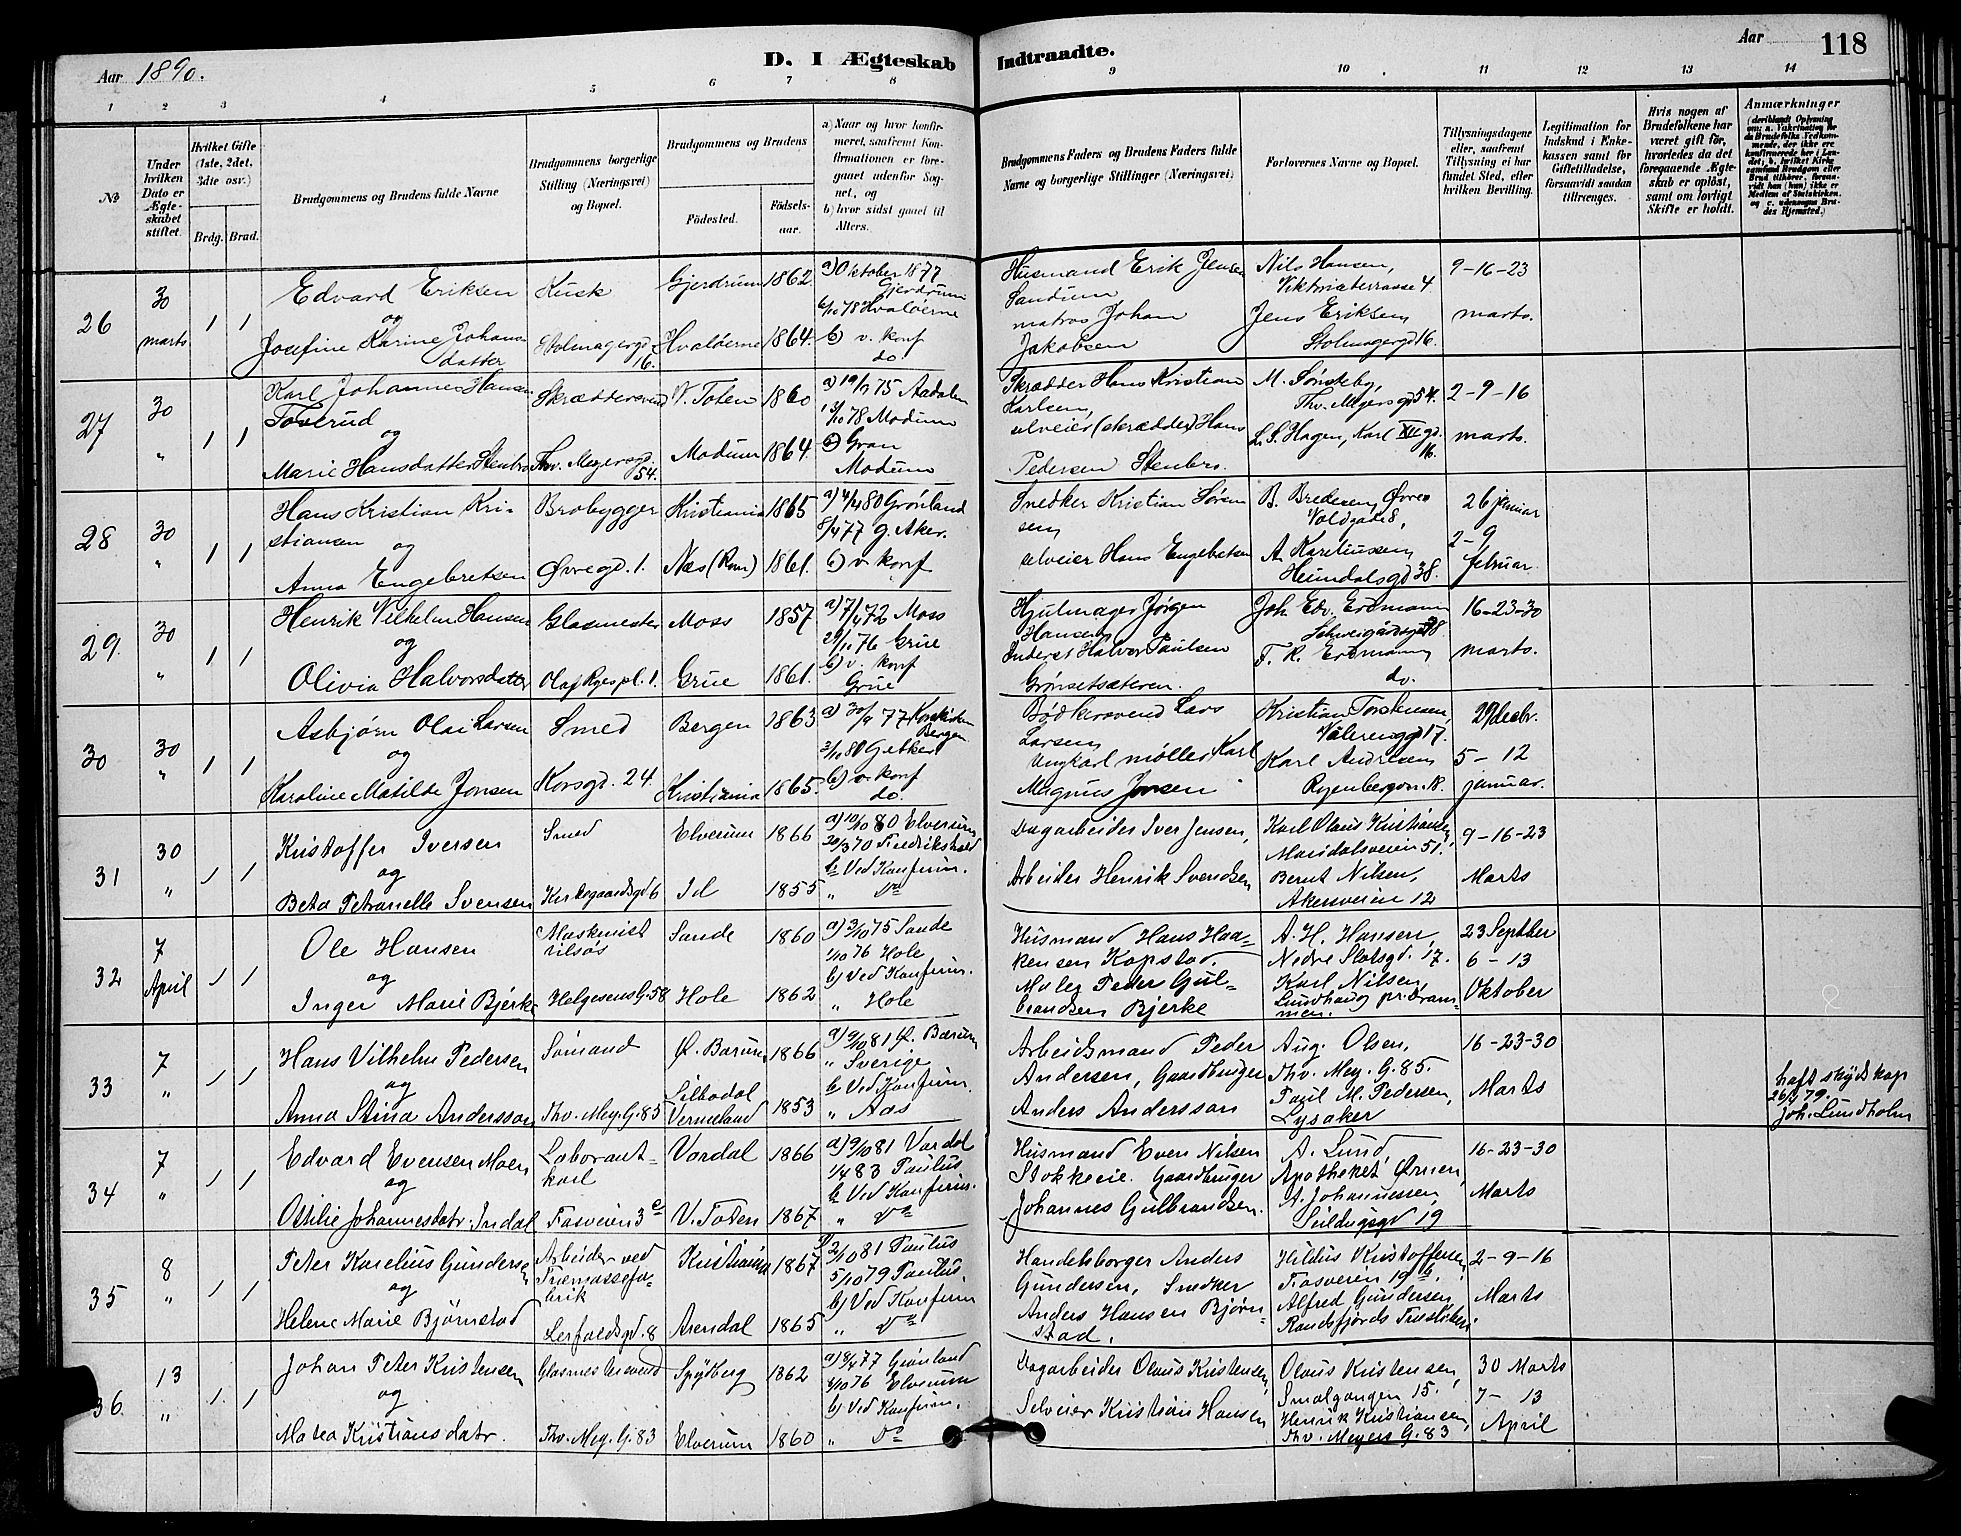 Aar 1890.
D. I Ægteskab Indtraadte.
Aar
118
1 2 3 4 5 6 7 8 9 10 11 12 13 14
No
Under hvilken Dato er Ægteskabet stiftet.
Hvilket Gifte (1ste, 2det, 3die osv.)
Brdg. Brud.
Brudgommens og Brudens fulde Navne
Brudgommens borgerlige Stilling (Næringsvei) og Bopæl.
Brudgommens og Brudens
Fødested.
Fødselsaar.
a) Naar og hvor konfirmeret, saafremt Konfirmationen er foregaaet udenfor Sognet, og
b) hvor sidst gaaet til Alters.
Brudgommens Faders og Brudens Faders fulde Navne og borgerlige Stillinger (Næringsvei)
Forlovernes Navne og Bopæl.
Tillysningsdagene eller, saafremt Tillysning ei har fundet Sted, efter hvilken Bevilling.
Legitimation for Indskud i Enkekassen samt for Giftetilladelse, forsaavidt saadan tiltrænges.
Hvis nogen af Brudefolkene har været gift før, hvorledes da det foregaaende Ægteskab er opløst, samt om lovligt Skifte er holdt.
Anmærkninger
26
30 marts
1 1
Edvard Eriksen
og
Josefine Karine Johansdatter
Kusk
Stolmagergd. 16.
Gjerdrum 1862
Hvaløerne 1864.
a) Oktober 1877 Gjerdrum
6/10 78 Hvaløerne
b) v. konf
do
Husmand Erik Jensen
matros Johan Jakobsen
Nils Hansen,
Viktoriaterrasse 4.
Jens Eriksen
Stolmagergd 16.
9-16-23
marts.
27
30
"
1 1
Karl Johannes Hansen
Toverud
og
Marie Hansdatter Stenbro
Skræddersvend
Thv. Meyersgd. 54.
V. Toten 1860
Modum 1864.
75 Aadalen
78 Modum
b) Gran
Modum
Skrædder Hans Kristian
Karlsen,
selveier (skrædder) Hans
Pedersen Stenbro.
M. Sønsteby,
Thv. Meyersgd 54.
L. S. Hagen, Karl XII gd. 16.
2-9-16
marts.
28
30
"
1 1
Hans Kristian Kristiansen
og
Anna Engebretsen
Brobygger
Øvregd. 1.
Kristiania 1865
Næs (Rom) 1861.
a) 4/4 80 Grønland
8/4 77 g. Aker.
b) v. konf
Snedker Kristian Sørensen
selveier Hans Engebretsen
B. Bredesen, Øvre
Voldgade 8,
A. Kareliussen
Heimdalsgd 38.
26 januar
2-9
februar
29.
30
"
1 1
Henrik Vilhelm Hansen
og
Olivia Halvorsdatter
Glasmester
Olaf Ryes pl. 1.
Moss 1857
Grue 1861.
a) 7/4 72 Moss
29/10 76 Grue
b) v. konf
Grue
Hjulmager Jørgen
Hansen
Inderst Halvor Paulsen
Grønsetsæteren.
Joh. Edv. Erdmann
F. R. Erdmann
do.
16-23-30
marts.
30
30
"
1 1
Asbjørn Olai Larsen
og
Karoline Matilde Jonsen
Smed
Korsgd. 24.
Bergen 1863
Kristiania 1865.
a) 30/9 77 Korskirken
Bergen
3/10 80 G. Aker
b) v. konf
do.
Bødkersvend Lars
Larsen
Ungkarl møller Karl
Magnus Jonsen
Kristian Torstensen,
Vålerenggd 17.
Karl Andersen
Ryenbergvn. 18.
29 decbr.
5-12
januar.
31
30
"
1 1
Kristoffer Iversen
og
Beta Petronelle Svensen
Smed
Kirkegaardsgd 6
Elverum 1866
Id 1855
a) 10/10 80 Elverum
20/3 70 Fredrikshald
b Ved Konfirm.
" Do
Dagarbeider Iver Jensen,
Arbeider Henrik Svendsen
Karl Olaus Kristiansen,
Maridalsveien 51.
Bernt Nilsen,
Akersveien 12
9-16-23
Marts
32
7
April
1 1
Ole Hansen
og
Inger Marie Bjerke
Maskinist
tilsøs
Helgesens G. 58
Sande 1860
Hole 1862
a) 3/10 75 Sande
1/10 76 Hole
b) Ved Konfirm.
" Hole
Husmand Hans Haakensen Kopstad.
Maler Peder Gulbrandsen Bjerke
A. H. Hansen,
Nedre Slotsgd. 17.
Karl Nilsen,
Lundhaug pr. Drammen.
23 Septber
6-13
Oktober
33
7
"
1 1
Hans Vilhelm Pedersen
og
Anna Stina Andersson
Sømand
Thv. Mey. G. 85
Ø. Bærum 1866
Lilbodal
Vermeland 1853
a) 9/10 81 Ø. Bærum
" Sverige
b Ved Konfirm.
" Aas
Arbeidsmand Peder
Andersen, Gaardbruger
Anders Andersson
Aug. Olsen,
Thv. Mey. G. 85.
Paul M. Pedersen,
Lysaker
16-23-30
Marts
haft skydskop
26/4 79.
Joh. Lundholm
34
7
"
1 1
Edvard Evensen Moen
og
Ottilie Johannesdatr. Indal
Laborantkarl
Fossveien 3 c
Vardal 1866
V. Toten 1867
a) 9/10 81 Vardal
1/4 83 Paulus
b Ved Konfirm.
" Do
Husmand Even Nilsen
Stokkeeie. Gaardbruger
Johannes Gulbrandsen.
A. Lund,
Apotheket Ørnen,
A. Johannessen,
Seildugsgd 19
16-23-30
Marts
35
8
"
1 1
Peter Karelius Gundersen
og
Helene Marie Bjørnstad
Arbeider ved
Træmassefabrik
Lerfaldsgd. 8
Kristiania 1867
Arendal 1865
2/10 81 Paulus
5/10 79 Paulus.
b) Ved Konfirm
" Do
Handelsborger Anders
Gundersen, Snedker
Anders Hansen Bjørnstad.
Hildus Kristoffersen,
Fossveien 19 b.
Alfred Gundersen
Randsfjords Træsliberi.
2-9-16
Marts
36.
13
"
1. 1
Johan Peter Kristensen
og
Matea Kristiansdatr.
Glasmestersvend
Thv. Mey. G. 83
Spydberg 1862
Elverum 1860
a) 8/4 77 Grønland
1/10 76 Elverum
b) Ved Konfirm.
" Do
Dagarbeider Olaus Kristensen,
Selveier Kristian Hansen
Olaus Kristensen,
Smalgangen 15.
Henrik Kristiansen,
Thv. Meyers G. 83
30 Marts
7-13
April